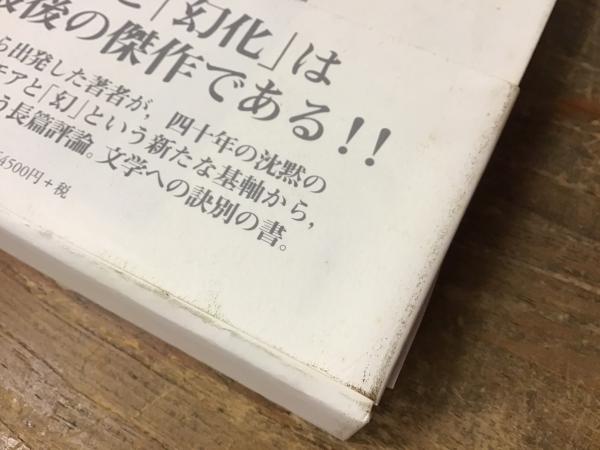 と「幻化」は
最後の傑作である!!
ら出発した著者が，四十年の沈黙の
モアと「幻」という新たな基軸から，
う長篇評論。文学への訣別の書。
4500円+税